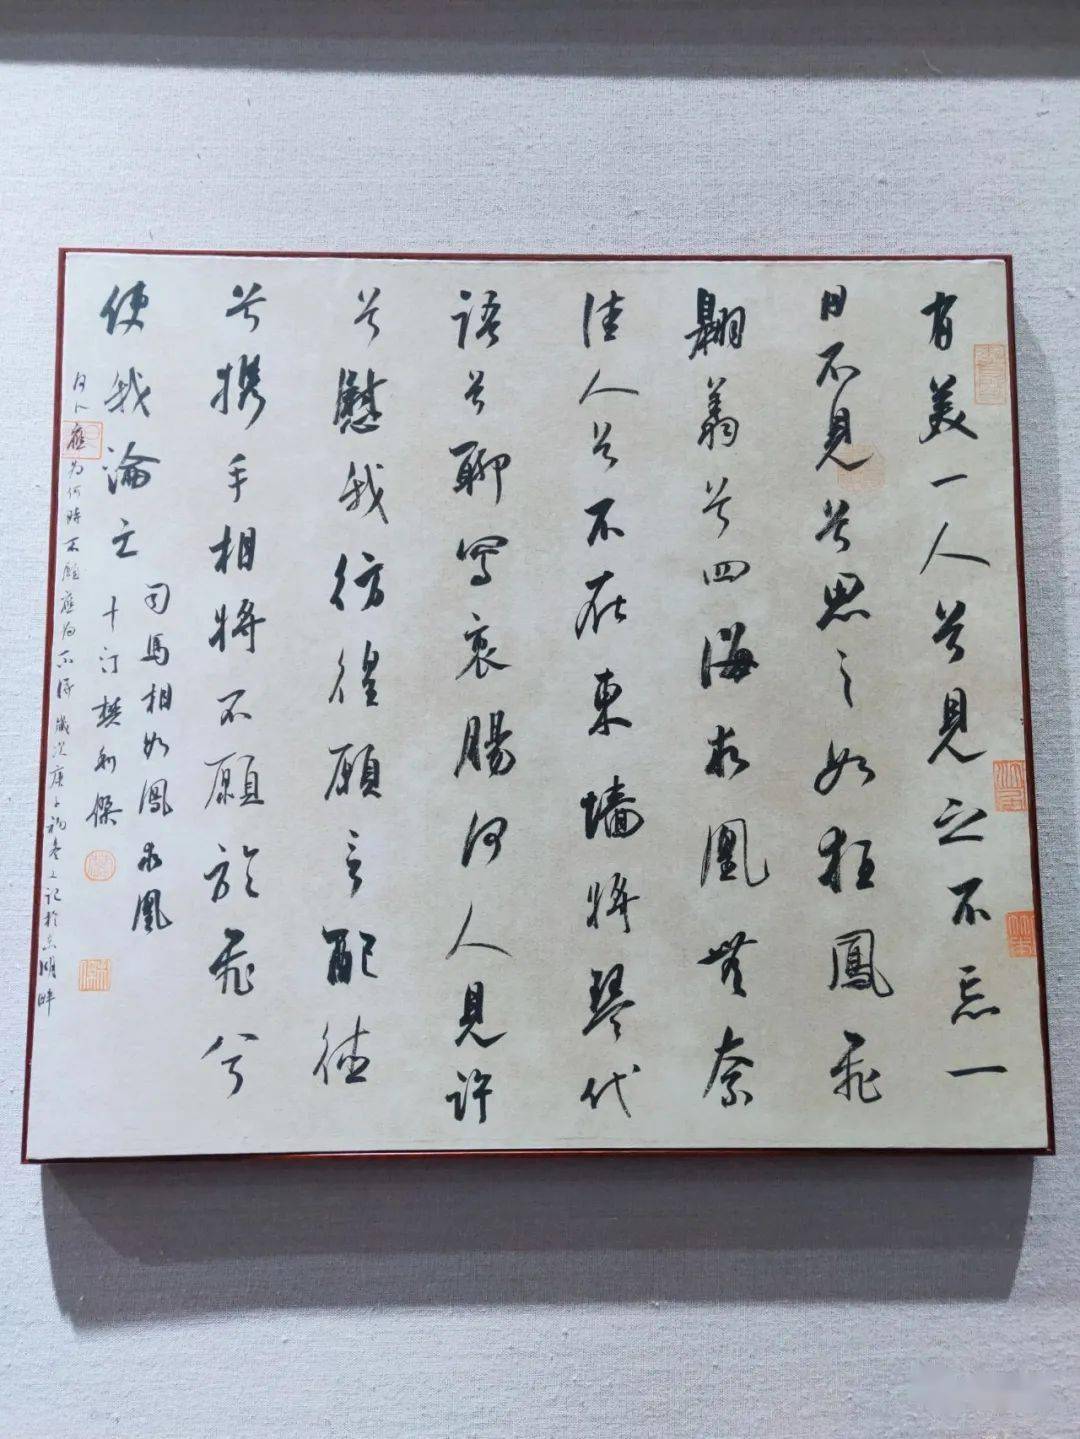 有美一人兮見之不忘一
日不見兮思之如狂鳳飛
翱翔兮四海求凰無奈
佳人兮不在東墻將琴代
語兮聊寫衷腸何人見許
兮慰我彷徨願言配德
兮携手相將不願於飛兮
使我淪亡
司馬相如鳳求凰
十汀樊利傑
應為何時不願應為不得歲次庚子初冬又記於東湖畔